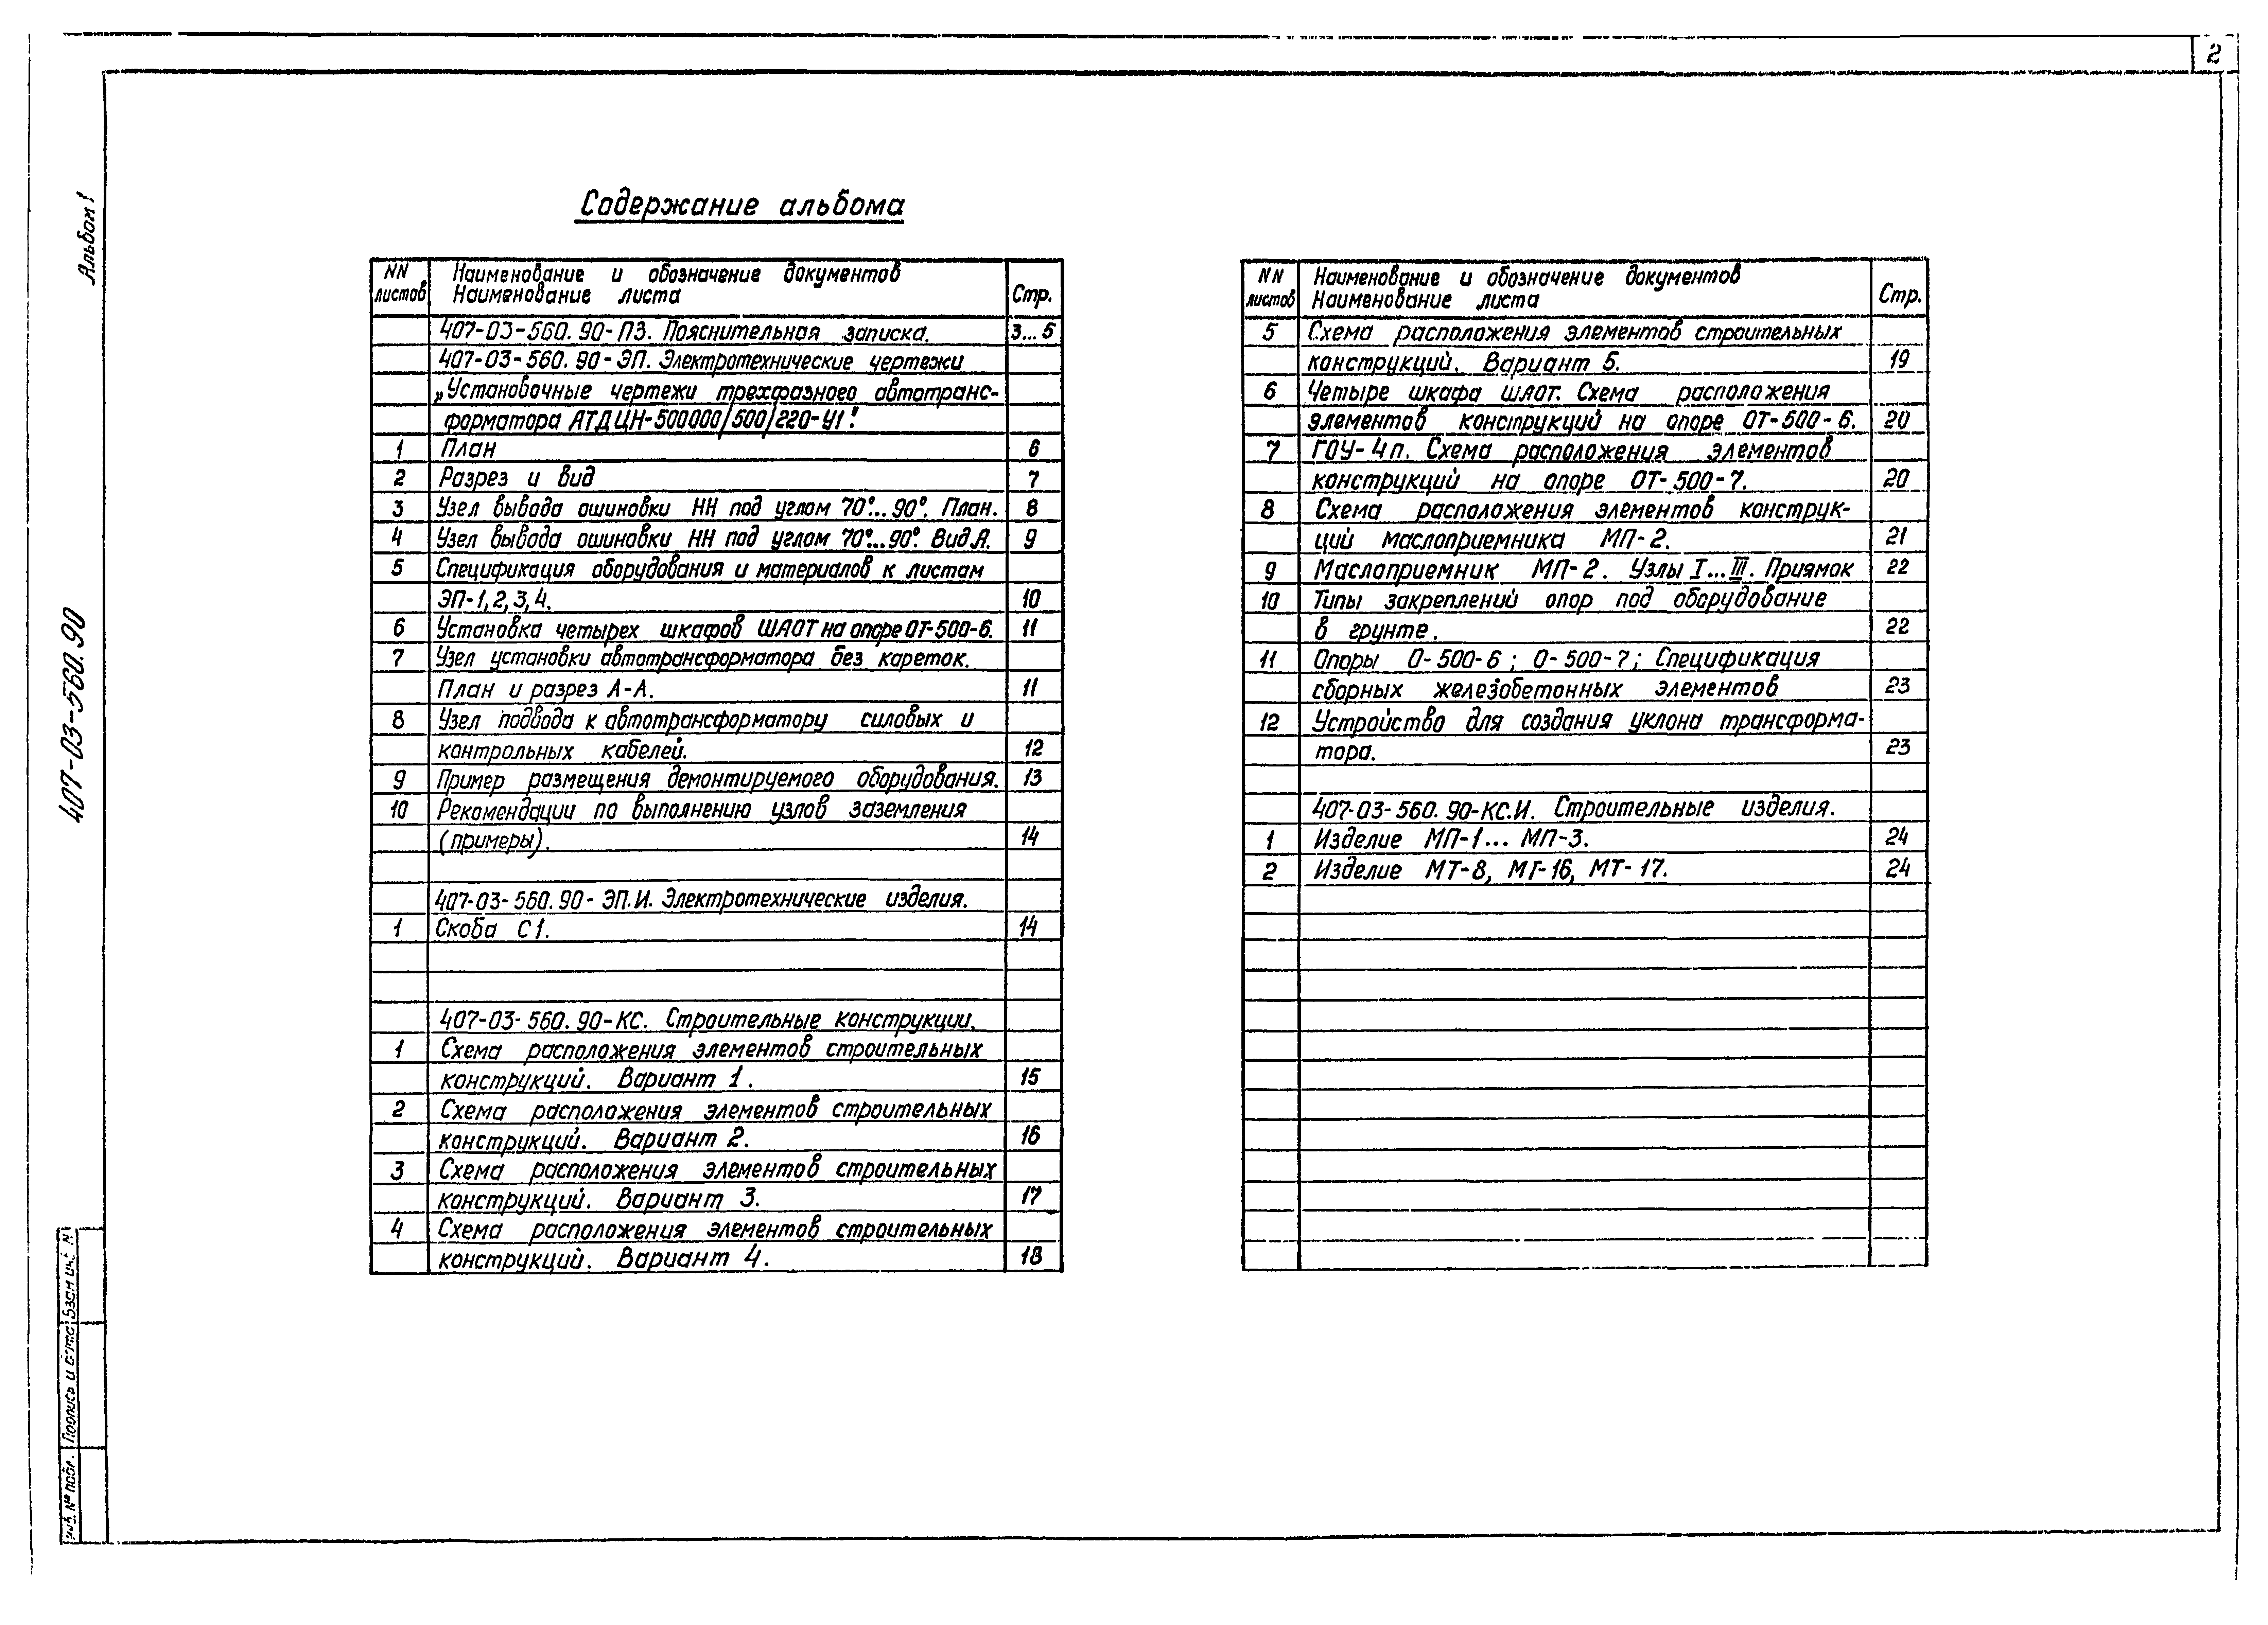 2
Альбом 1
407-03-560.90
Содержание альбома
NN листов Наименование и обозначение документов Наименование листа Стр.
407-03-560.90-ПЗ. Пояснительная записка. 3...5
407-03-560.90-ЭП. Электротехнические чертежи
„Установочные чертежи трехфазного автотранс-
форматора АТДЦН-500000/500/220-У1".
1 План 6
2 Разрез и вид 7
3 Узел вывода ошиновки НН под углом 70°...90°. План. 8
4 Узел вывода ошиновки НН под углом 70°...90°. Вид А. 9
5 Спецификация оборудования и материалов к листам
ЭП-1,2,3,4. 10
6 Установка четырех шкафов ШАОТ на опоре ОТ-500-6. 11
7 Узел установки автотрансформатора без кареток.
План и разрез А-А. 11
8 Узел подвода к автотрансформатору силовых и
контрольных кабелей. 12
9 Пример размещения демонтируемого оборудования. 13
10 Рекомендации по выполнению узлов заземления
(примеры). 14
407-03-560.90-ЭП.И. Электротехнические изделия.
1 Скоба С1. 14
407-03-560.90-КС. Строительные конструкции.
1 Схема расположения элементов строительных
конструкций. Вариант 1. 15
2 Схема расположения элементов строительных
конструкций. Вариант 2. 16
3 Схема расположения элементов строительных
конструкций. Вариант 3. 17
4 Схема расположения элементов строительных
конструкций. Вариант 4. 18
NN листов Наименование и обозначение документов Наименование листа Стр.
5 Схема расположения элементов строительных
конструкций. Вариант 5. 19
6 Четыре шкафа ШАОТ. Схема расположения
элементов конструкций на опоре ОТ-500-6. 20
7 ГОУ-4п. Схема расположения элементов
конструкций на опоре ОТ-500-7. 20
8 Схема расположения элементов конструк-
ций маслоприемника МП-2. 21
9 Маслоприемник МП-2. Узлы I...III. Приямок 22
10 Типы закреплений опор под оборудование
в грунте. 22
11 Опоры О-500-6; О-500-7; Спецификация
сборных железобетонных элементов 23
12 Устройство для создания уклона трансформа-
тора. 23
407-03-560.90-КС.И. Строительные изделия.
1 Изделие МП-1... МП-3. 24
2 Изделие МТ-8, МТ-16, МТ-17. 24
Взам инв №
Подпись и дата
Инв. № подл.